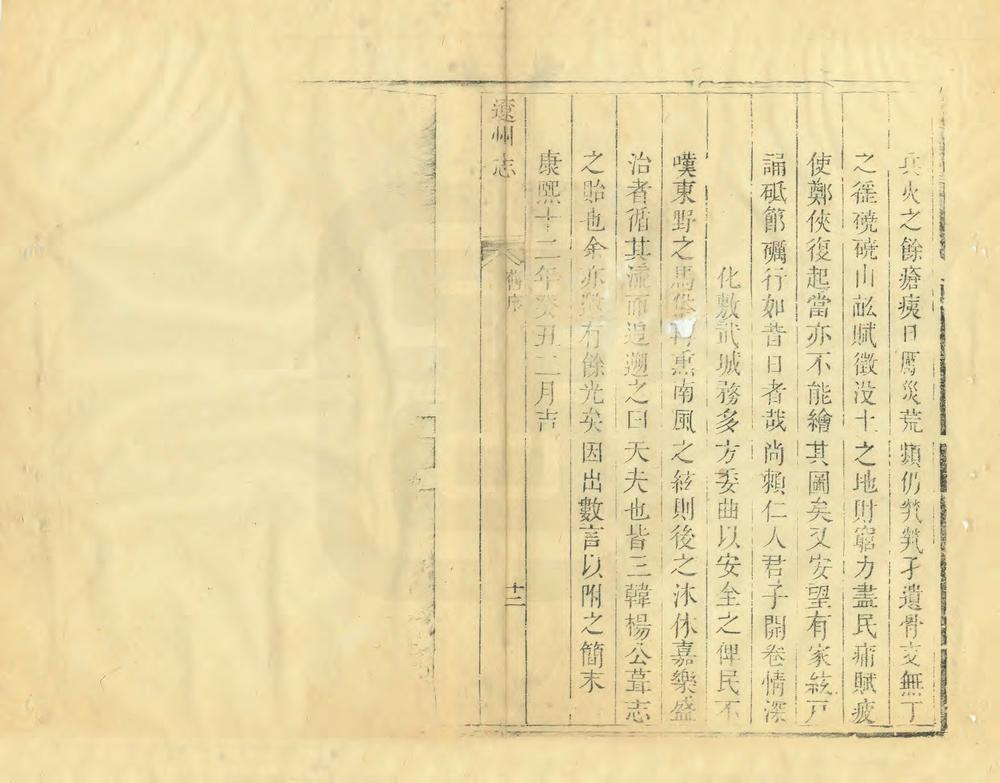 兵火之餘瘡痍日厲災荒頻仍煢煢孑遺骨支無丁
之徭磽磽山畝賦徵没土之地財窮力盡民痡賦疲
使鄭俠復起當亦不能繪其圖矣又安望有家絃戸
誦砥節礪行如昔日者哉尚賴仁人君子開卷情深
化敷武城務多方委曲以安全之俾民不
嘆東野之馬俗再熏南風之絃則後之沐休嘉樂盛
治者循其流而追遡之曰天夫也皆三韓楊公葺志
之貽也余亦有餘光矣因出數言以附之簡末
康熙十二年癸丑二月吉
遼州志
舊序
十二